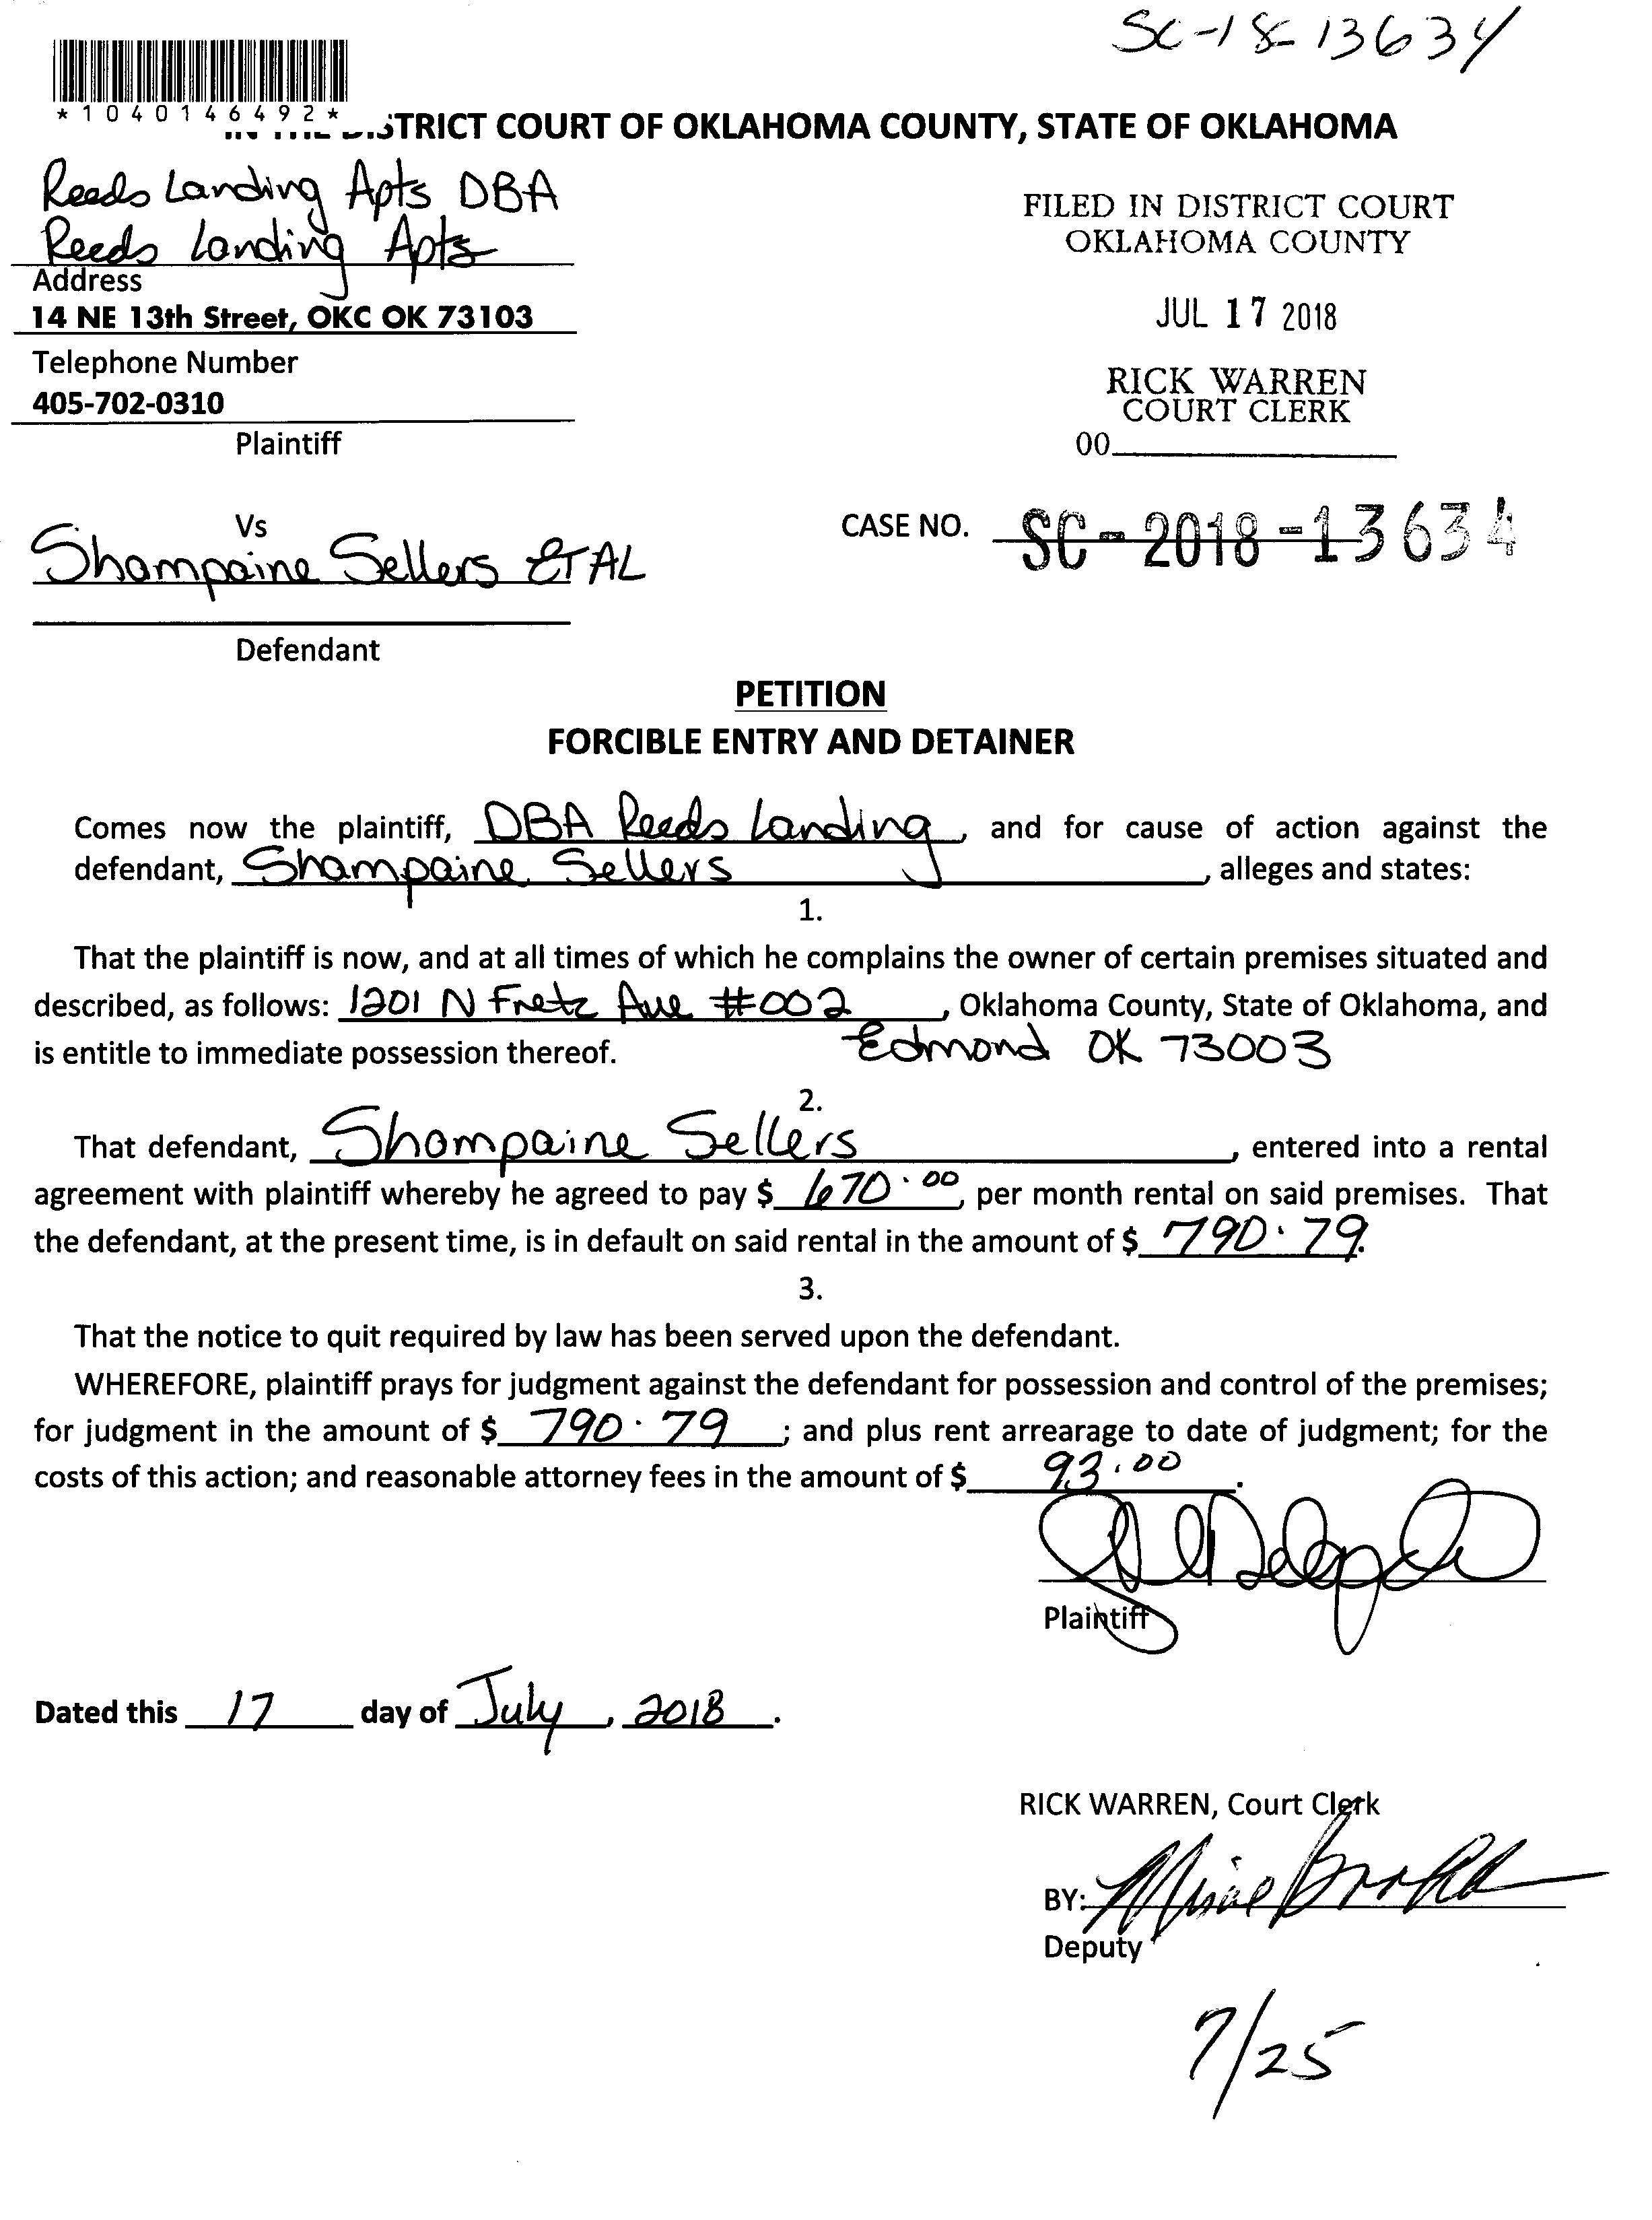 SC-18-13634
*1040146492*
IN THE DISTRICT COURT OF OKLAHOMA COUNTY, STATE OF OKLAHOMA
Reeds Landing Apts DBA
Reeds Landing Apts
Address
14 NE 13th Street, OKC OK 73103
Telephone Number
405-702-0310
Plaintiff
FILED IN DISTRICT COURT
OKLAHOMA COUNTY
JUL 17 2018
RICK WARREN
COURT CLERK
00
Vs
Shampaine Sellers ET AL
Defendant
CASE NO. SC-2018-13634
PETITION
FORCIBLE ENTRY AND DETAINER
Comes now the plaintiff, DBA Reeds Landing, and for cause of action against the
defendant, Shampaine Sellers, alleges and states:
1.
That the plaintiff is now, and at all times of which he complains the owner of certain premises situated and
described, as follows: 1201 N Fretz Ave #002, Oklahoma County, State of Oklahoma, and
is entitle to immediate possession thereof. Edmond OK 73003
2.
That defendant, Shampaine Sellers, entered into a rental
agreement with plaintiff whereby he agreed to pay $ 670.00, per month rental on said premises. That
the defendant, at the present time, is in default on said rental in the amount of $ 790.79.
3.
That the notice to quit required by law has been served upon the defendant.
WHEREFORE, plaintiff prays for judgment against the defendant for possession and control of the premises;
for judgment in the amount of $ 790.79; and plus rent arrearage to date of judgment; for the
costs of this action; and reasonable attorney fees in the amount of $ 93.00.
Plaintiff
Dated this 17 day of July, 2018.
RICK WARREN, Court Clerk
BY:
Deputy
7/25